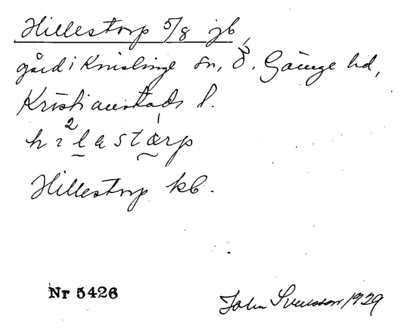 Hillestorp 5/8 jb,
gård i Knislinge sn, Ö. Göinge hd,
Kristianstads l.
hi²lastàrp
Hillestorp kb.
Nr 5426
John Svensson 1929